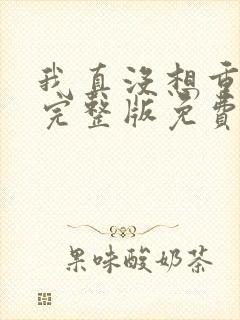 我真没想重
完整版免费
果味酸奶茶